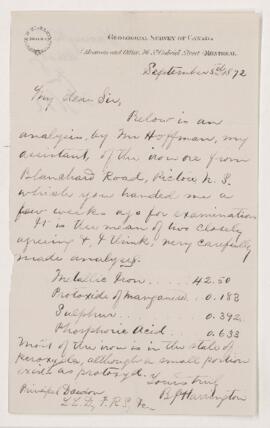 GEOLOGICAL SURVEY OF CANADA
Museum and Office, 76 St Gabriel Street - MONTREAL
September 5th 1872
My dear Sir,
Below is an
analysis, by Mr Hoffman, my
assistant, of the iron ore from
Blanchard Road, Pictou N. S.
which you handed me a
few weeks ago for examination
It is the mean of two closely
agreeing &, I think, very carefully
made analyses.
Metallic Iron.... 42.50
Protoxide of manganese.. 0.183
Sulphur.... 0.392
Phosphoric Acid.. 0.633
Most of the iron is in the state of
peroxide, although a small portion
exists as protoxyd.
Yours truly
B J Harrington
Principal Dawson
L.L.D, F.R.S, &c.